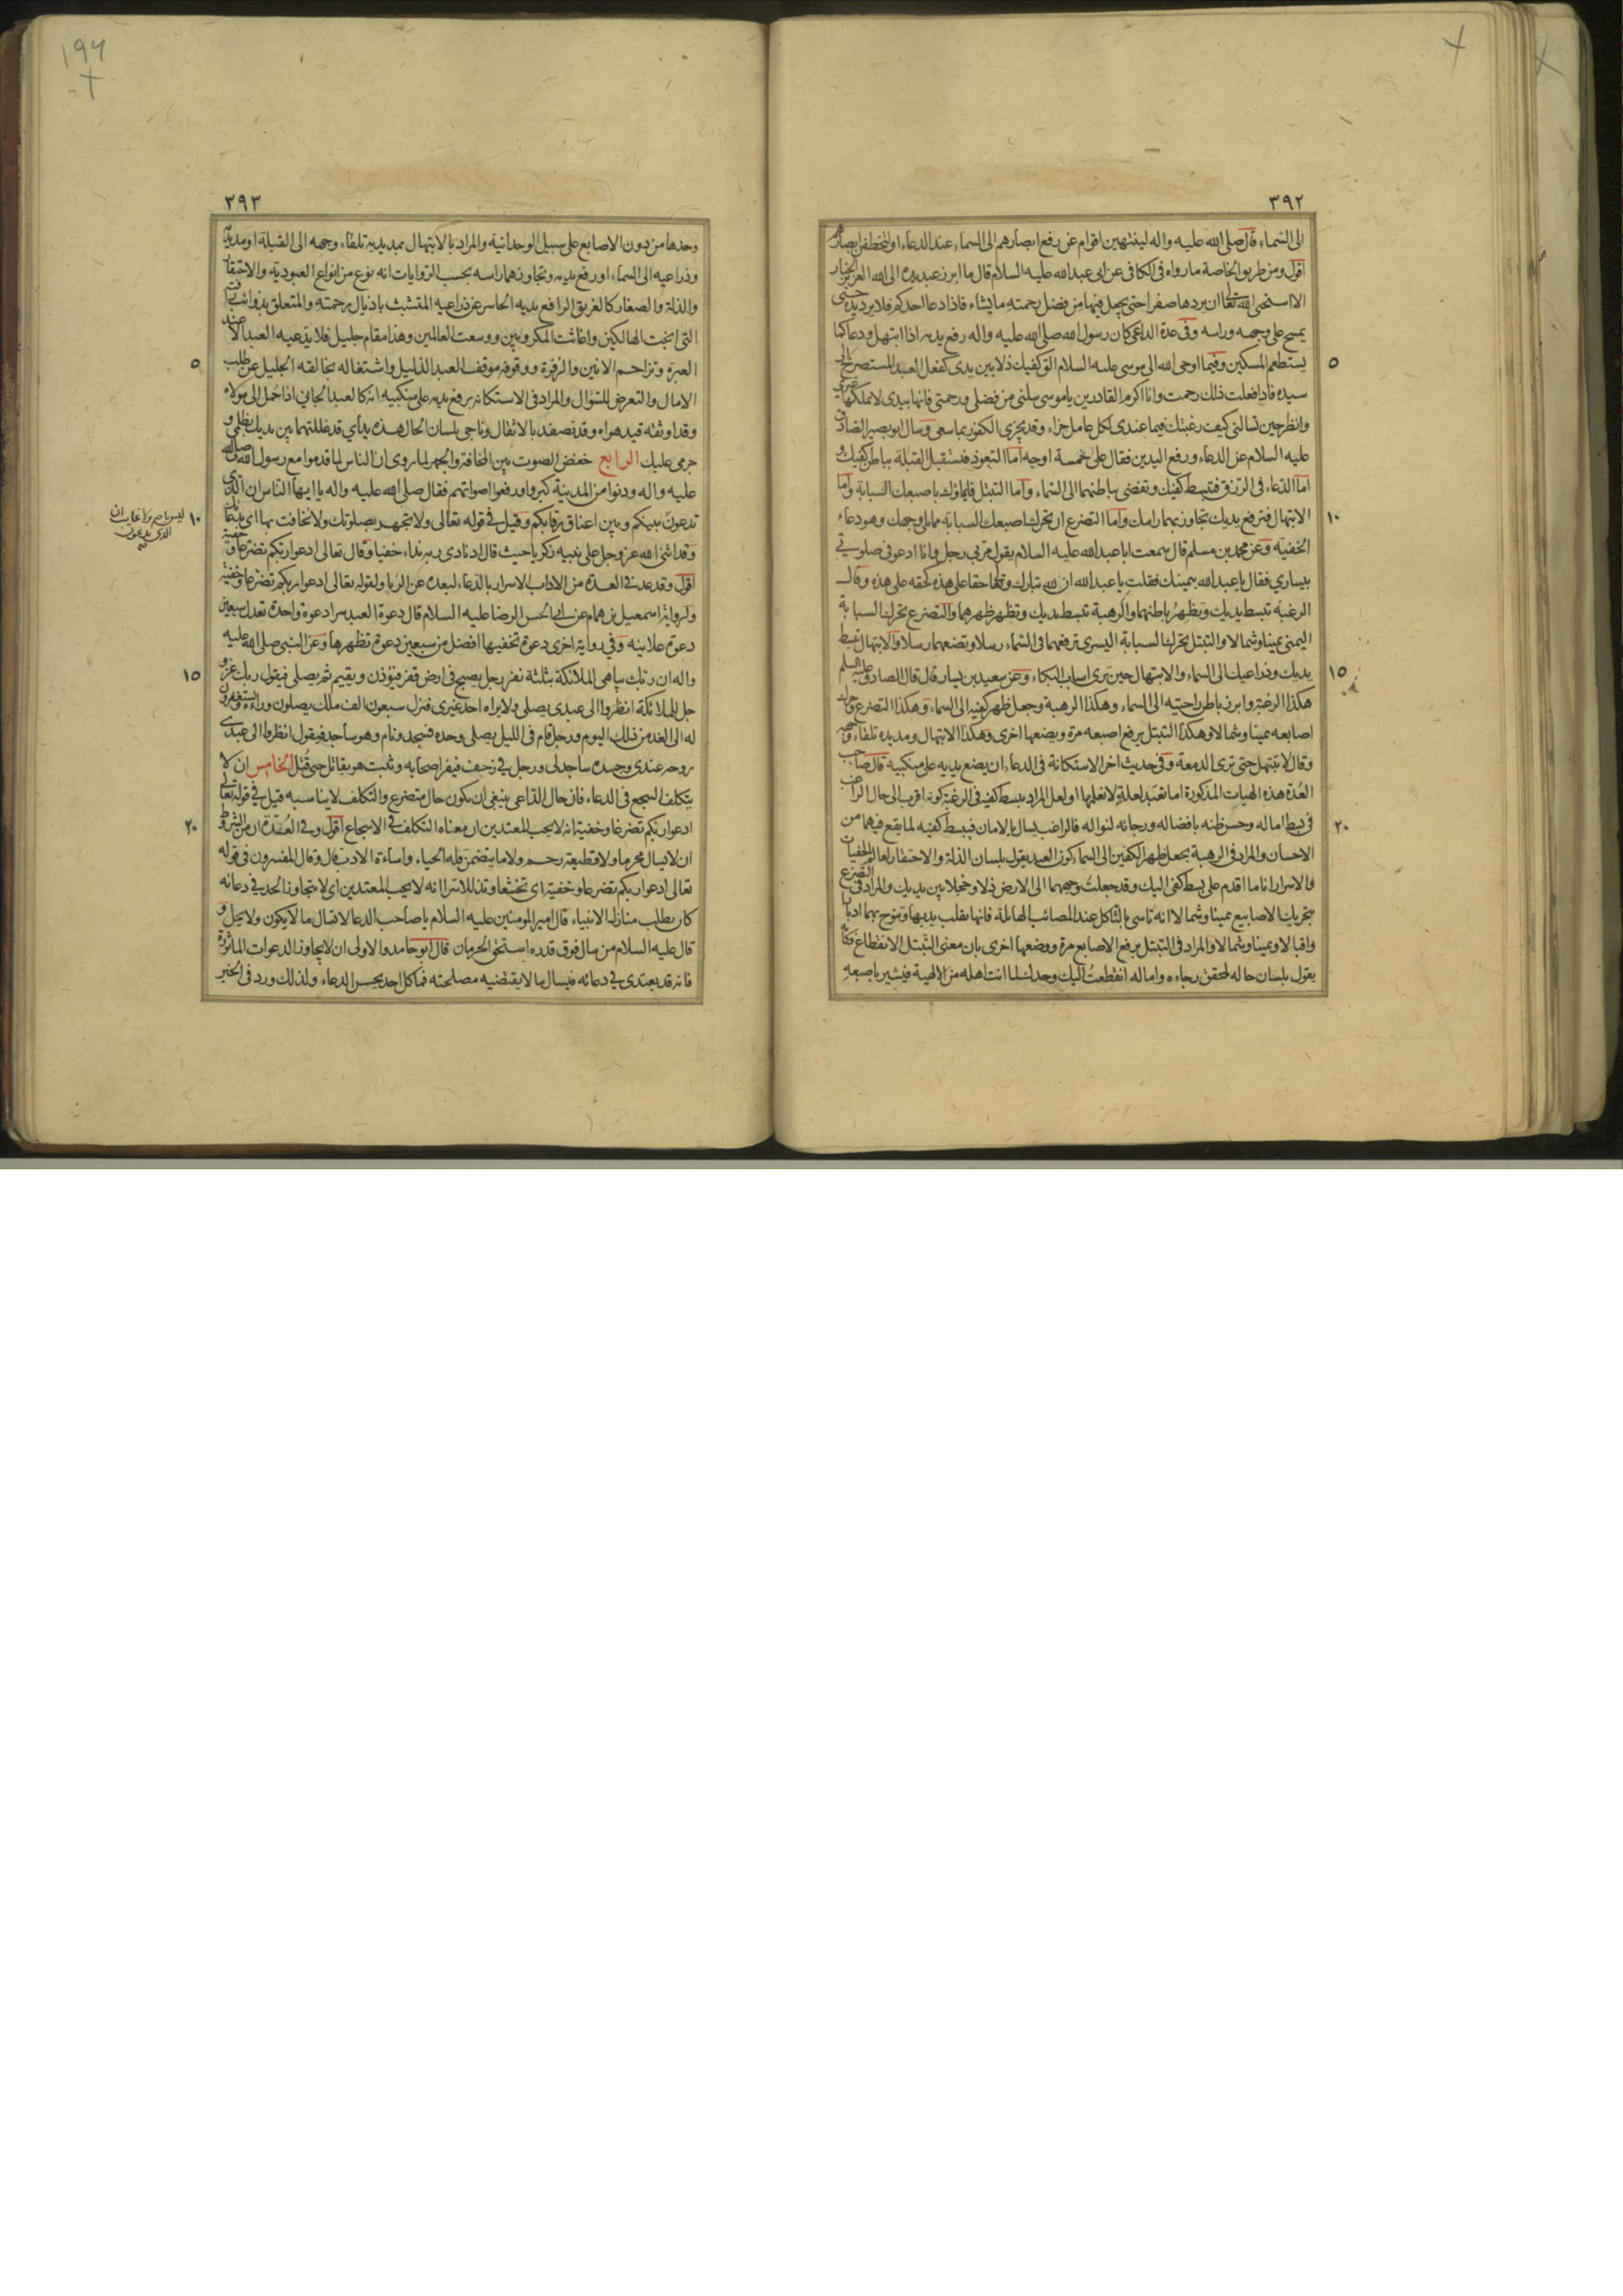 ٣٩٢
الى السماء قال صلى الله عليه واله لينتهين اقوام عن رفع ابصارهم الى السماء عند الدعاء او لتخطفن ابصارهم
اقول ومن طريق الخاصة ما رواه فى الكافى عن ابى عبد الله عليه السلام قال ما ابرز عبد يده الى الله العزيز الجبار
الا استحيى الله تعالى ان يردها صفرا حتى يجعل فيها من فضل رحمته ما يشاء فاذا دعا احدكم فلا يرد يده حتى
يمسح على وجهه وراسه وفى عدة الداعى كان رسول الله صلى الله عليه واله رفع يديه اذا ابتهل ودعا كما
٥
يستطعم المسكين وفيما اوحى الله الى موسى عليه السلام الق كفيك ذلا بين يدى كفعل العبد المستصرخ الى
سيده فاذا فعلت ذلك رحمت وانا اكرم القادرين يا موسى سلنى من فضلى ورحمتى فانها بيدى لا يملكها غيرى
وانظر حين تسالنى كيف رغبتك فيما عندى لكل عامل جزاء وقد يجزى الكفور بما سعى وسال ابو بصير الصادق
عليه السلام عن الدعاء ورفع اليدين فقال على خمسة اوجه اما التعوذ فتستقبل القبلة بباطن كفيك و
اما الدعاء فى الرزق فتبسط كفيك وتفضى بباطنهما الى السماء واما التبتل فايماؤك باصبعك السبابة واما
١٠
الابتهال فترفع يديك تجاوز بهما راسك واما التضرع ان تحرك اصبعك السبابة مما يلى وجهك وهو دعاء
الخفية وعن محمد بن مسلم قال سمعت ابا عبد الله عليه السلام يقول مر بى رجل وانا ادعو فى صلوتى
بيسارى فقال يا عبد الله بيمينك فقلت يا عبد الله ان لله تبارك وتعالى حقا على هذه كحقه على هذه وقال
الرغبة تبسط يديك وتظهر باطنهما والرهبة تبسط يديك وتظهر ظهرهما والتضرع تحرك السبابة
اليمنى يمينا وشمالا والتبتل تحرك السبابة اليسرى ترفعهما فى السماء رسلا وتضعهما رسلا والابتهال تبسط
١٥
يديك وذراعيك الى السماء والابتهال حين ترى اسباب البكاء وعن سعيد بن يسار قال قال الصادق عليه السلم
هكذا الرغبة وابرز باطن راحتيه الى السماء وهكذا الرهبة وجعل ظهر كفيه الى السماء وهكذا التضرع وحرك
اصابعه يمينا وشمالا وهكذا التبتل يرفع اصبعه مرة ويضعها اخرى وهكذا الابتهال ومد يده تلقاء وجهه
وقال لا تبتهل حتى ترى الدمعة وفى حديث اخر الاستكانة فى الدعاء ان يضع يديه على منكبيه قال صاحب
العدة هذه الهيات المذكورة اما تعبد لعلة لا نعلمها او لعل المراد ببسط كفيه فى الرغبة كونه اقرب الى حال الراغب
٢٠
فى بسط اماله وحسن ظنه بافضاله ورجائه لنواله فالراغب يسال بالامان فيبسط كفيه لما يقع فيهما من
الاحسان والمراد فى الرهبة بجعل ظهر الكفين الى السماء كون العبد يقول بلسان الذلة والاحتقار لعالم الخفيات
والاسرار انا ما اقدم على بسط كفى اليك وقد جعلت وجههما الى الارض ذلا وخجلا بين يديك والمراد فى التضرع
بتحريك الاصابيع يمينا وشمالا انه تاسى بالثاكل عند المصائب الهائلة فانها تقلب يديها وتنوح بهما ادبارا
واقبالا ويمينا وشمالا والمراد فى التبتل برفع الاصابع مرة ووضعها اخرى بان معنى التبتل الانقطاع فكانه
يقول بلسان حاله لمحقق رجاءه واماله انقطعت اليك وحدك لما انت اهله من الالهية فيشير باصبعه
١٩٧
٣٩٣
وحدها من دون الاصابع على سبيل الوحدانية والمراد بالابتهال بمد يديه تلقاء وجهه الى القبلة او مد يديه
وذراعيه الى السماء او رفع يديه وتجاوزهما راسه بحسب الروايات انه نوع من انواع العبودية والاحتقار
والذلة والصغار كالغريق الرافع يديه الحاسر عن ذراعيه المتشبث باذيال رحمته والمتعلق بذوائب رافته
التى انجت الهالكين واغاثت المكروبين ووسعت العالمين وهذا مقام جليل فلا يدعيه العبد الا عند
٥
العبرة وتزاحم الانين والزفرة ووقوفه موقف العبد الذليل واشتغاله بخالقه الجليل عن طلب
الامال والتعرض للسؤال والمراد فى الاستكانة برفع يديه على منكبيه انه كالعبد الجانى اذا حمل الى مولاه
وقد اوثقه قيد هواه وقد تصفد بالاثقال وناجى بلسان الحال هذه يداى قد غللتهما بين يديك بظلمى و
جرمى عليك الرابع خفض الصوت بين المخافتة والجهر لما روى ان الناس لما قدموا مع رسول الله صلى الله
عليه واله ودنوا من المدينة كبروا ورفعوا اصواتهم فقال صلى الله عليه واله يا ايها الناس ان الذى
ليس باصم ولا غايب ان الذى تدعون صح
١٠
تدعون بينكم وبين اعناق رقابكم وقيل فى قوله تعالى ولا تجهر بصلوتك ولا تخافت بها اى بدعائك
وقد اثنى الله عز وجل على نبيه زكريا حيث قال اذ نادى ربه نداء خفيا وقال تعالى ادعوا ربكم تضرعا وخفية
اقول وقد عد فى العدة من الاداب الاسرار بالدعاء لبعده عن الريا ولقوله تعالى ادعوا ربكم تضرعا وخفية
ولرواية اسمعيل بن همام عن ابى الحسن الرضا عليه السلام قال دعوة العبد سرا دعوة واحدة تعدل سبعين
دعوة علانية وفى رواية اخرى دعوة تخفيها افضل من سبعين دعوة تظهرها وعن النبى صلى الله عليه
١٥
واله ان ربك يباهى الملائكة بثلثة نفر رجل يصبح فى ارض قفر فيؤذن ويقيم ثم يصلى فيقول ربك عز و
جل للملائكة انظروا الى عبدى يصلى ولا يراه احد غيرى فنزل سبعون الف ملك يصلون وراءه ويستغفرون
له الى الغد من ذلك اليوم ورجل قام فى الليل يصلى وحده فسجد ونام وهو ساجد فيقول انظروا الى عبدى
روحه عندى وجسده ساجد لى ورجل فى زحف فيفر اصحابه وثبت هو يقاتل حتى قتل الخامس ان لا
يتكلف السجع فى الدعاء فان حال الداعى ينبغى ان يكون حال متضرع والتكلف لا يناسبه قيل فى قوله تعالى
٢٠
ادعوا ربكم تضرعا وخفية انه لا يحب المعتدين ان معناه التكلف فى الاسجاع اقول وفى العدة ان من الشروط
ان لا يسال محرما ولا قطيعة رحم ولا ما يتضمن قلة الحياء واساءة الادب قال وقال المفسرون فى قوله
تعالى ادعوا ربكم تضرعا وخفية اى تخشعا وتذللا سرا انه لا يحب المعتدين اى لا يتجاوز الحد فى دعائه
كان يطلب منازل الانبياء قال امير المومنين عليه السلام يا صاحب الدعا لا تسال ما لا يكون ولا يحل و
قال عليه السلام من سال فوق قدره استحق الحرمان قال ابو حامد والاولى ان لا يجاوز الدعوات الماثورة
فانه قد يعتدى فى دعائه فيسال ما لا يقتضيه مصلحته فما كل احد يحسن الدعاء ولذلك ورد فى الخبر